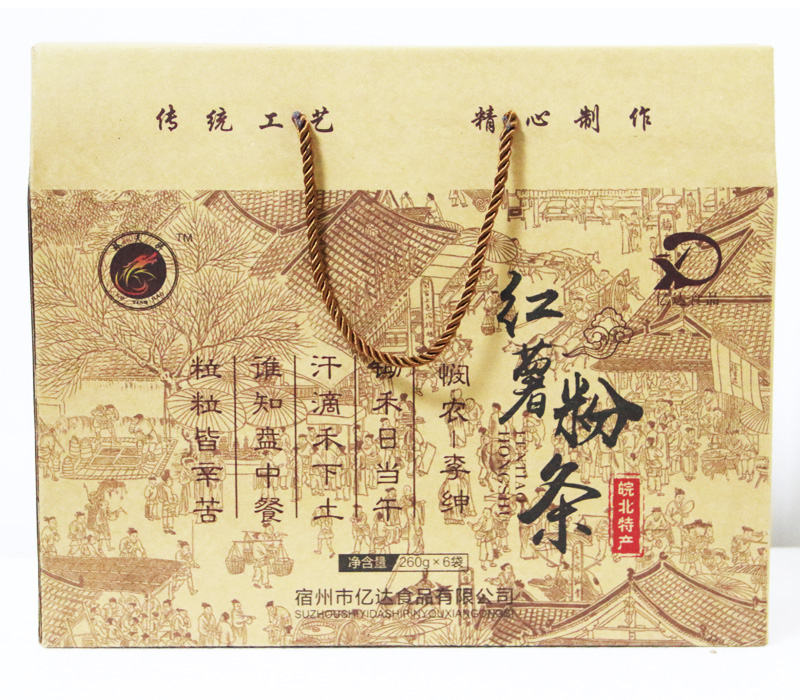 传统工艺 精心制作
TM
红薯粉条
HONGSHU
FENTIAO
皖北特产
悯农－李绅
锄禾日当午
汗滴禾下土
谁知盘中餐
粒粒皆辛苦
净含量 260g×6袋
宿州市亿达食品有限公司
SUZHOUSHIYIDASHIPINYOUXIANGONGSI